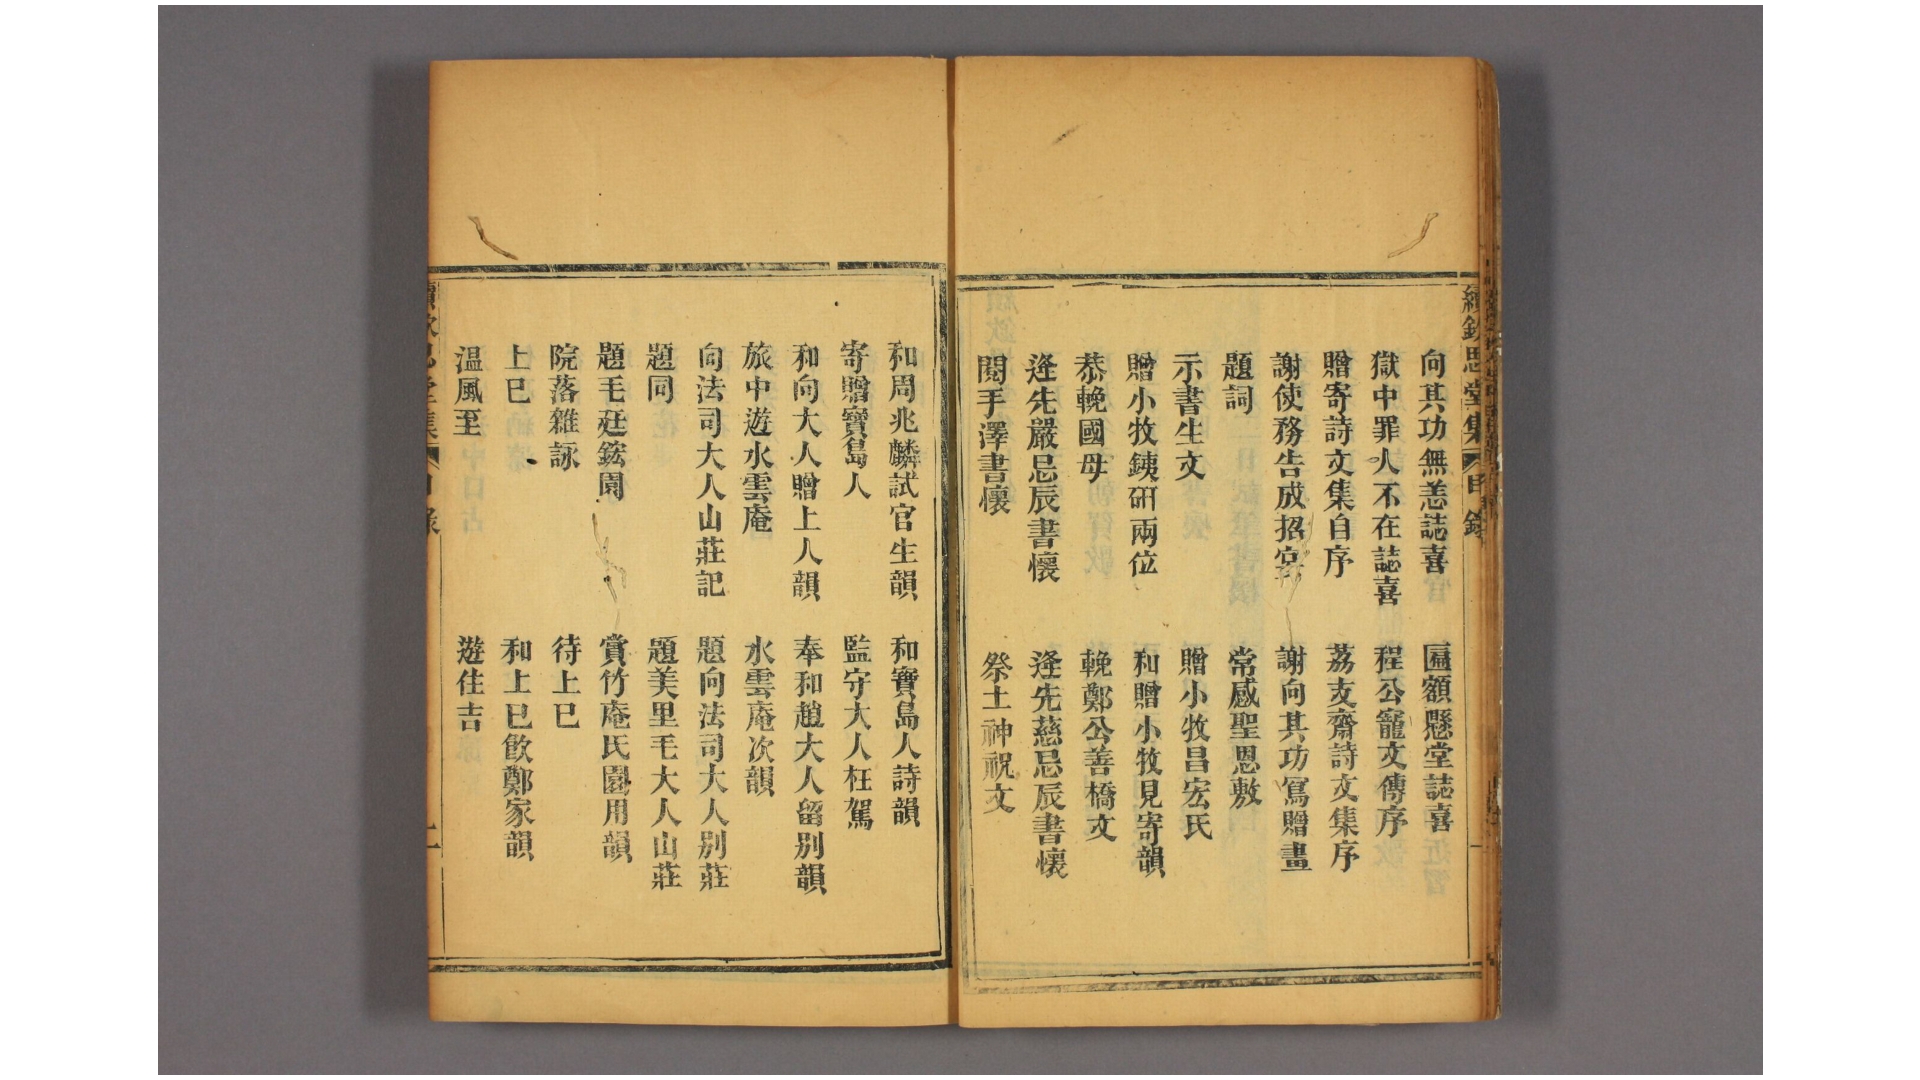 續欽思堂集 目錄
向其功無恙誌喜 匾額懸堂誌喜
獄中罪人不在誌喜 程公寵文傳序
贈寄詩文集自序 荔支齋詩文集序
謝使務告成招宮 謝向其功寫贈畫
題詞 常感聖恩敷
示書生文 贈小牧昌宏氏
贈小牧銕研兩位 和贈小牧見寄韻
恭輓國母 輓鄭公善橋文
逢先嚴忌辰書懷 逢先慈忌辰書懷
閱手澤書懷 祭土神祝文
和周兆麟試官生韻 和寶島人詩韻
寄贈寶島人 監守大人枉駕
和向大人贈上人韻 奉和趙大人留別韻
旅中遊水雲庵 水雲庵次韻
向法司大人山莊記 題向法司大人別莊
題同 題美里毛大人山莊
題毛廷鋐園 賞竹庵氏園用韻
院落雜詠 待上巳
上巳 和上巳飲鄭家韻
温風至 遊住吉